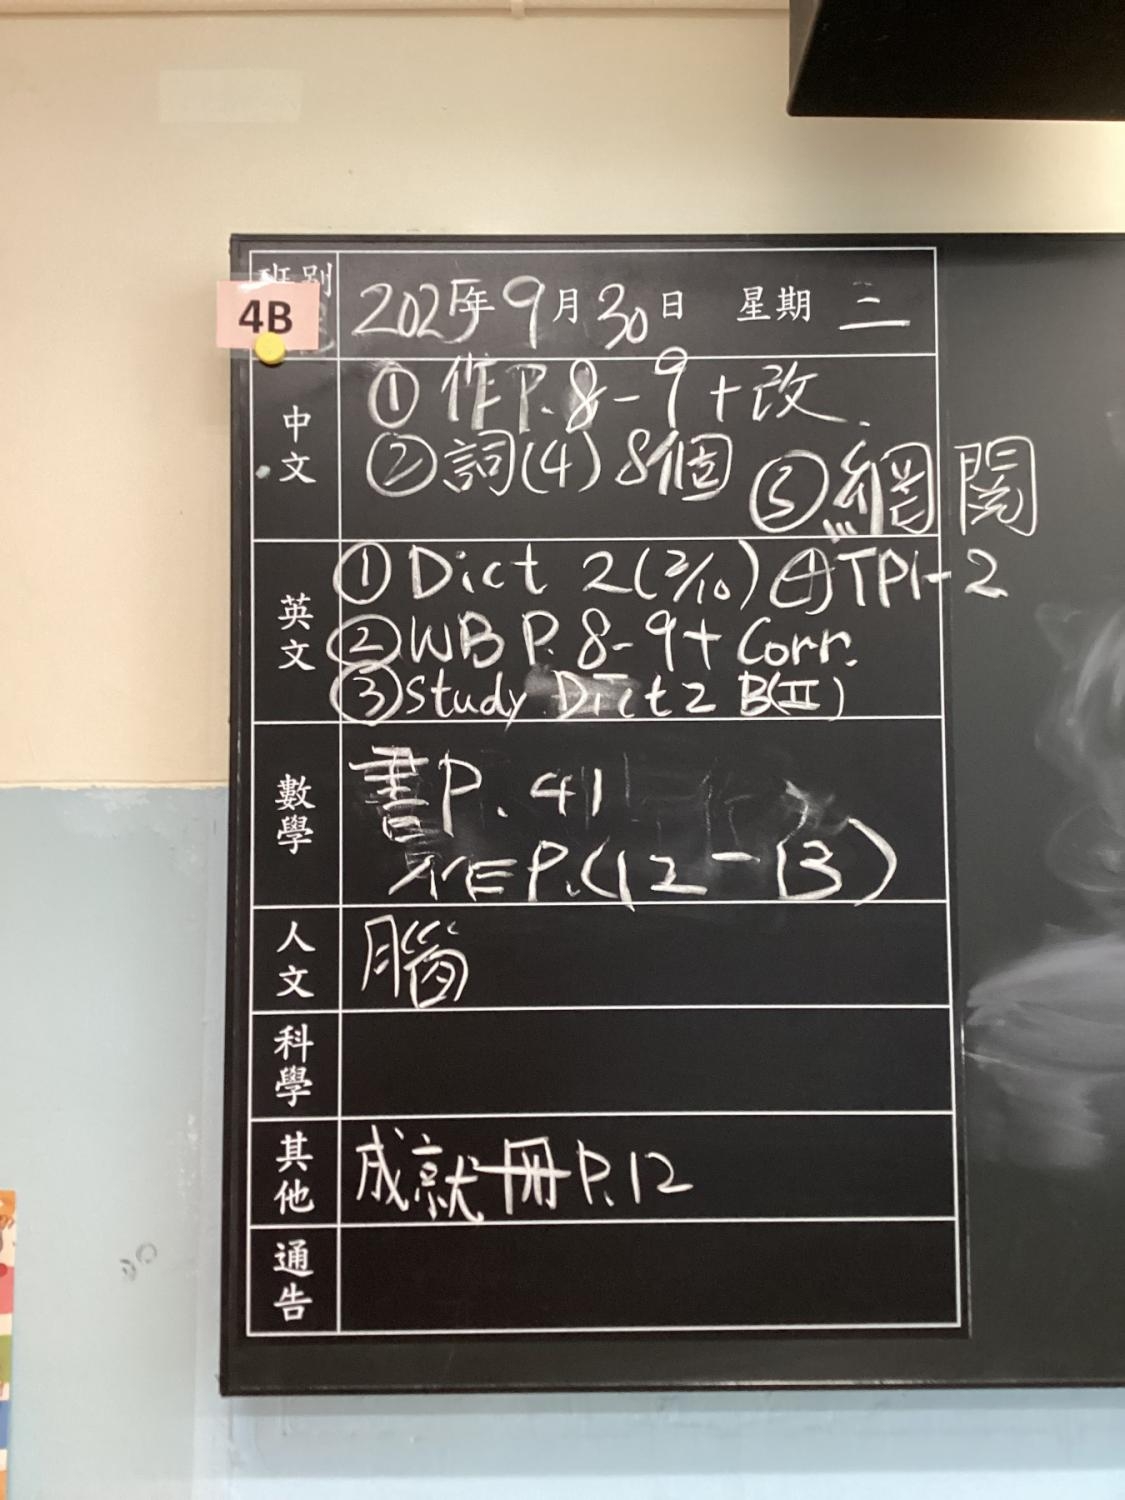 班別
4B
2025年9月30日 星期二
中文
①作P.8-9+改.
②詞(4)8個 ③網閱
英文
①Dict 2(2/10) ④TP1-2
②WB P.8-9+Corr.
③Study Dict 2 B(II)
數學
書P.41
P.(12-13)
人文
腦
科學
其他
成就冊P.12
通告